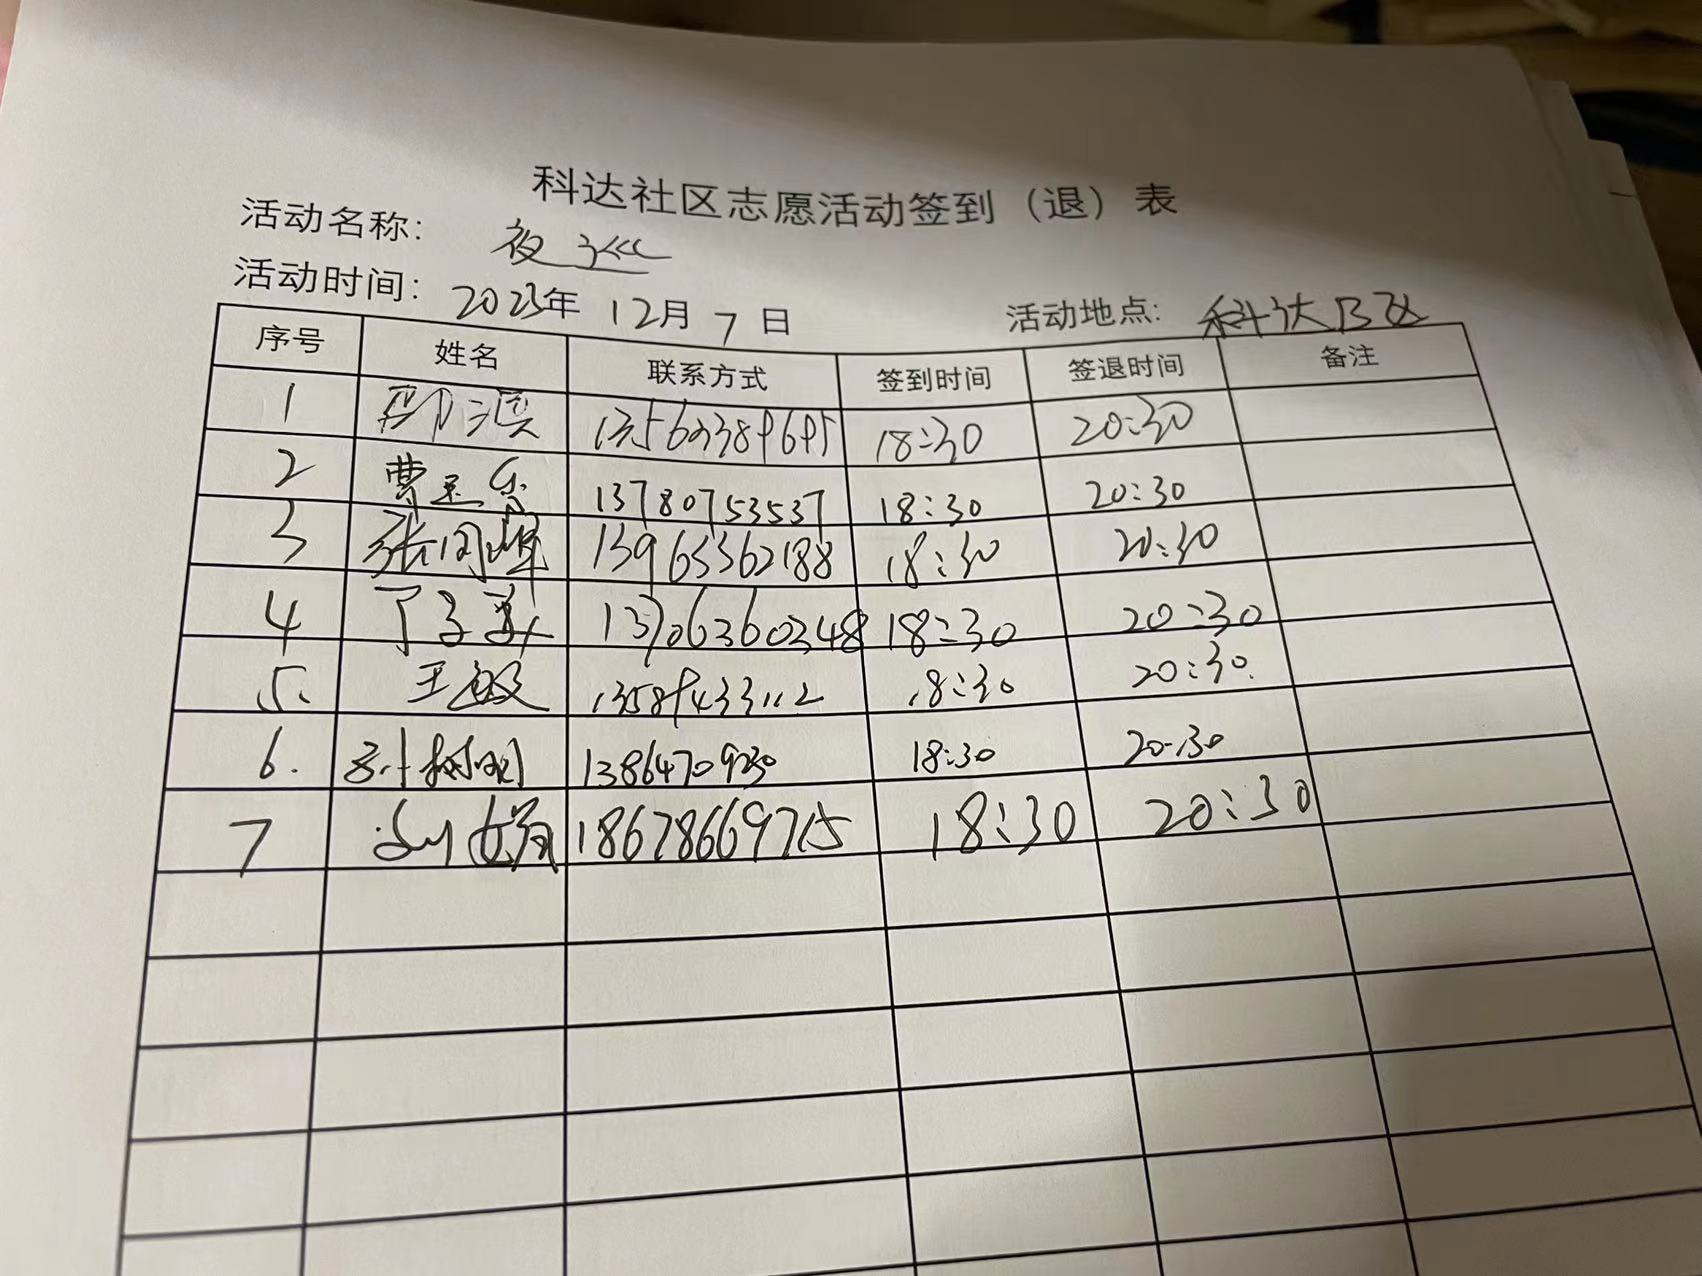 科达社区志愿活动签到（退）表
活动名称： 夜巡
活动时间： 2023年 12月 7日 活动地点： 科达社区
序号 姓名 联系方式 签到时间 签退时间 备注
1 18:30 20:30
2 曹 13780753537 18:30 20:30
3 张同峰 13963362188 18:30 20:30
4 丁 13706360348 18:30 20:30
5. 王 13589433112 18:30 20:30
6. 13864709230 18:30 20:30
7 18678669715 18:30 20:30